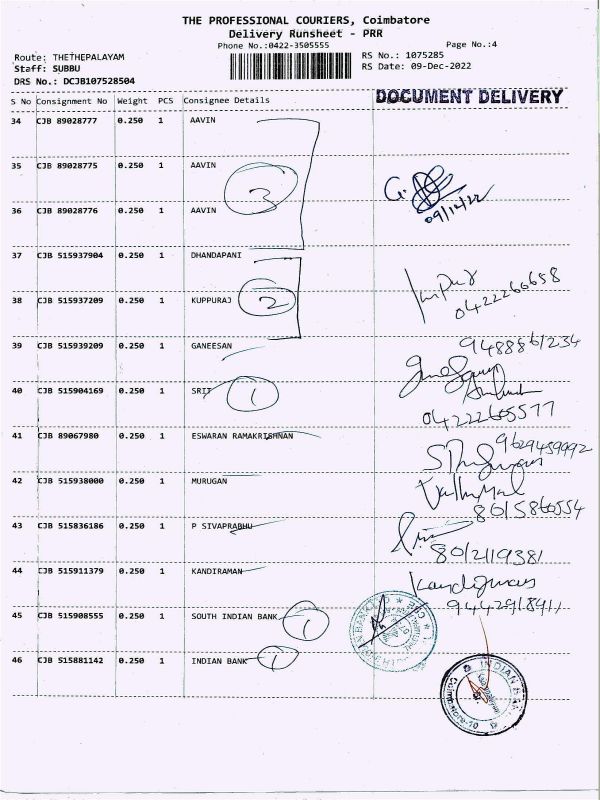 THE PROFESSIONAL COURIERS, Coimbatore
Delivery Runsheet - PRR
Phone No.:0422-3505555
Page No.:4
Route: THETHEPALAYAM
RS No.: 1075285
Staff: SUBBU
RS Date: 09-Dec-2022
DRS No.: DCJB107528504
S No Consignment No Weight PCS Consignee Details
DOCUMENT DELIVERY
34 CJB 89028777 0.250 1 AAVIN
35 CJB 89028775 0.250 1 AAVIN
3
09/12/22
36 CJB 89028776 0.250 1 AAVIN
37 CJB 515937904 0.250 1 DHANDAPANI
38 CJB 515937209 0.250 1 KUPPURAJ 2
04222266658
39 CJB 515939209 0.250 1 GANEESAN
9488861234
40 CJB 515904169 0.250 1 SRIT 1
04222605577
41 CJB 89067980 0.250 1 ESWARAN RAMAKRISHNAN
9629459992
42 CJB 515938000 0.250 1 MURUGAN
8015866554
43 CJB 515836186 0.250 1 P SIVAPRABHU
8012119381
44 CJB 515911379 0.250 1 KANDIRAMAN
45 CJB 515908555 0.250 1 SOUTH INDIAN BANK 1
46 CJB 515881142 0.250 1 INDIAN BANK 1
INDIAN BANK